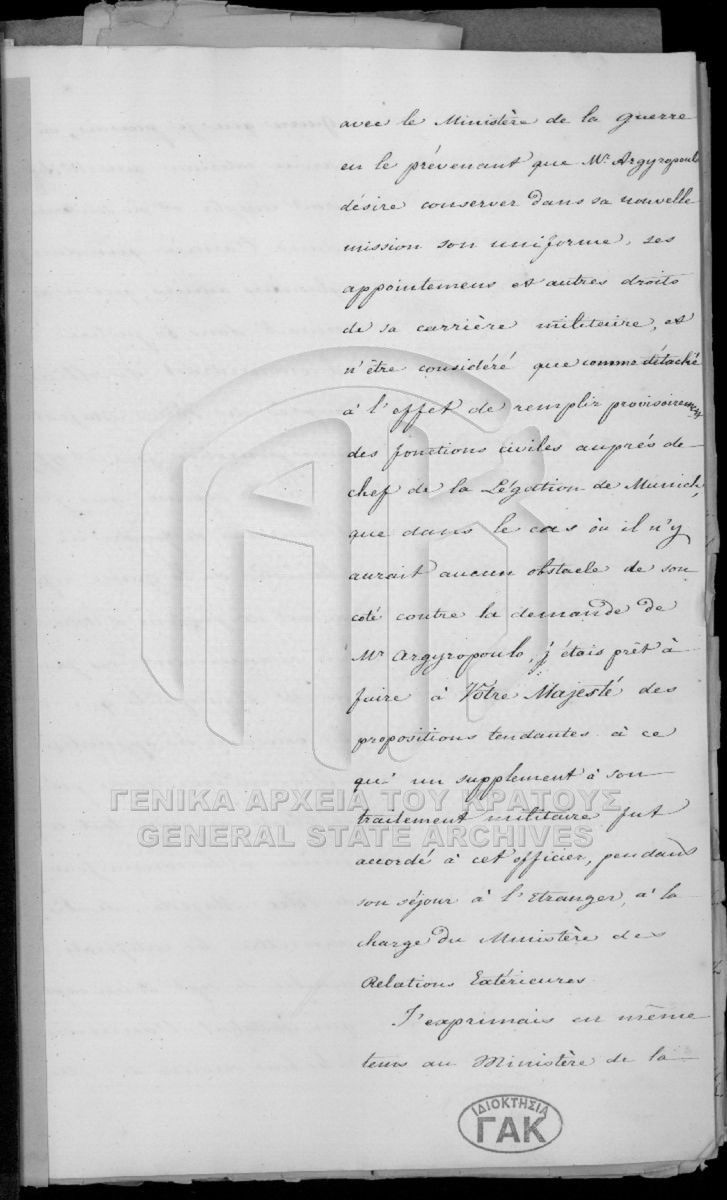 avec le Ministère de la guerre
en le prévenant que Mr Argyropoulo
désire conserver dans sa nouvelle
mission son uniforme, ses
appointemens et autres droits
de sa carrière militaire, et
n'être considéré que comme détaché
à l'effet de remplir provisoirement
des fonctions civiles auprès de
chef de la Légation de Munich,
que dans le cas où il n'y
aurait aucun obstacle de son
coté contre la demande de
Mr Argyropoulo, j'étais prêt à
faire à Votre Majesté des
propositions tendantes à ce
qu'un supplement à son
traitement militaire fut
accordé à cet officier, pendant
son séjour à l'Etranger, à la
charge du Ministère des
Relations Extérieures.
J'exprimais en même
tems au Ministère de la
ΓΕΝΙΚΑ ΑΡΧΕΙΑ ΤΟΥ ΚΡΑΤΟΥΣ
GENERAL STATE ARCHIVES
ΙΔΙΟΚΤΗΣΙΑ
ΓΑΚ